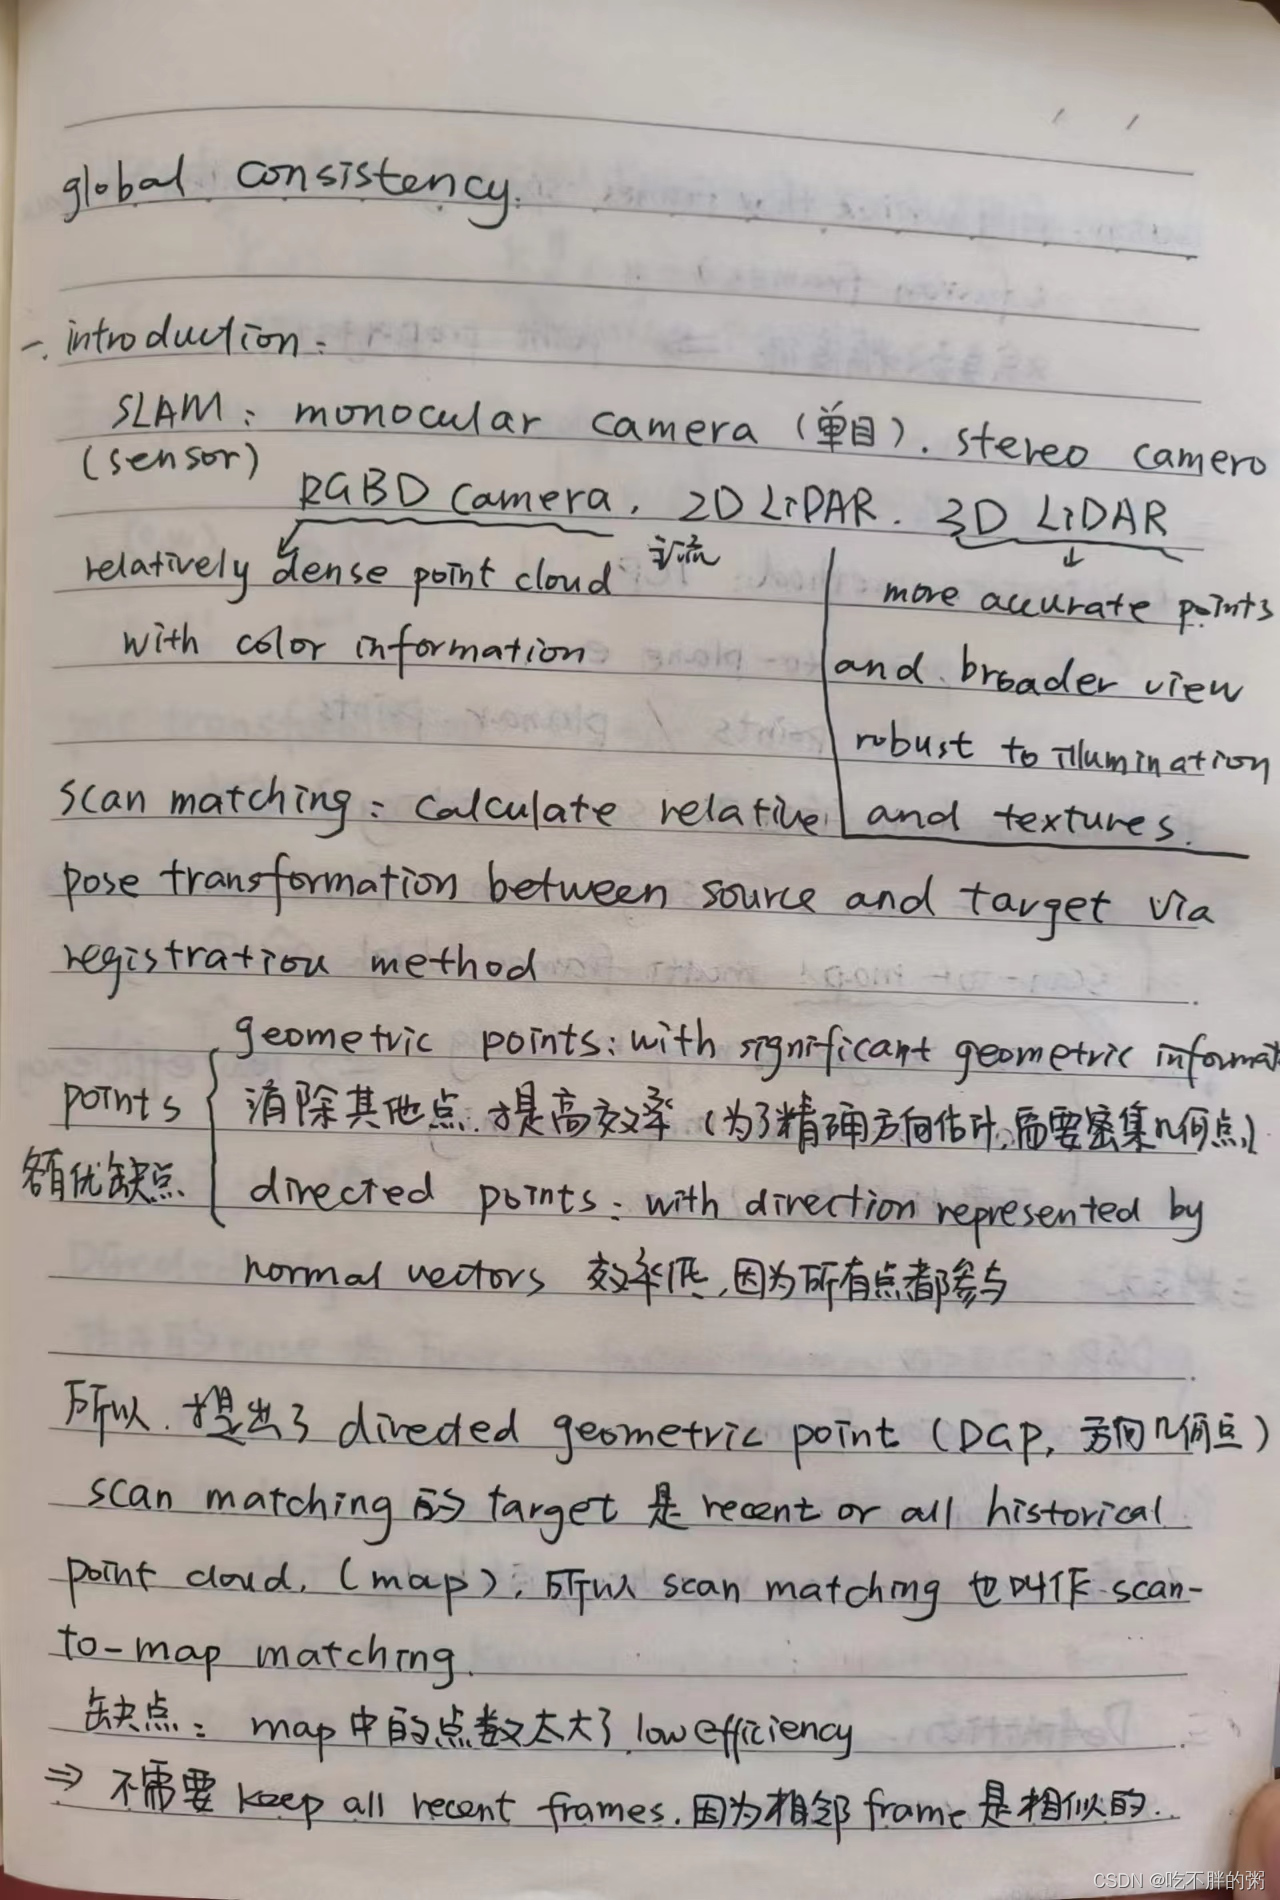 global consistency.
一. introduction:
SLAM: monocular camera (单目). stereo camera
(sensor)
RGBD camera. 2D LiDAR. 3D LiDAR
主流
relatively dense point cloud
with color information
more accurate points
and broader view
robust to illumination
and textures.
scan matching: calculate relative
pose transformation between source and target via
registration method
geometric points: with significant geometric informat
points
消除其他点.提高效率 (为了精确方向估计,需要密集几何点)
各有优缺点
directed points: with direction represented by
normal vectors 效率低,因为所有点都参与
所以.提出了 directed geometric point (DGP, 方向几何点)
scan matching 的 target 是 recent or all historical
point cloud. (map), 所以 scan matching 也叫作 scan-
to-map matching.
缺点: map中的点数太大了 low efficiency
⇒ 不需要 keep all recent frames.因为相邻frame是相似的.
CSDN @吃不胖的粥